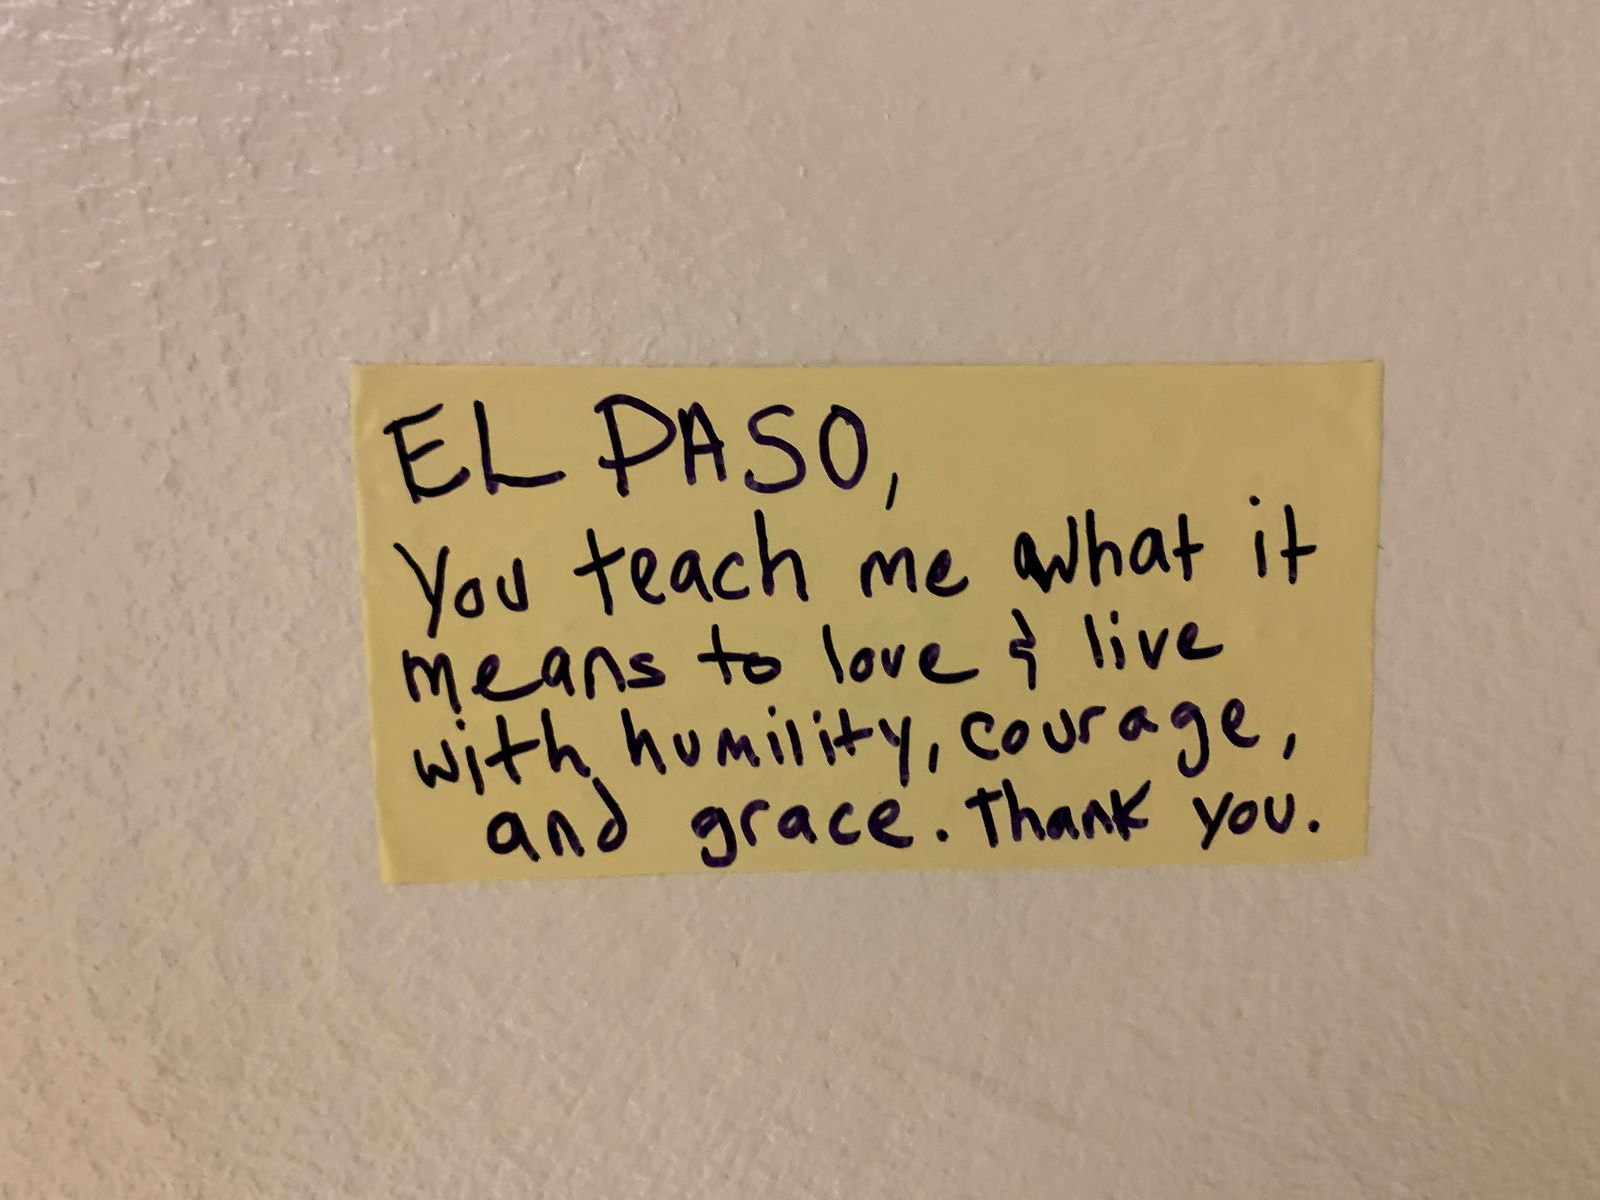 EL PASO,
You teach me what it
means to love & live
with humility, courage,
and grace. Thank you.